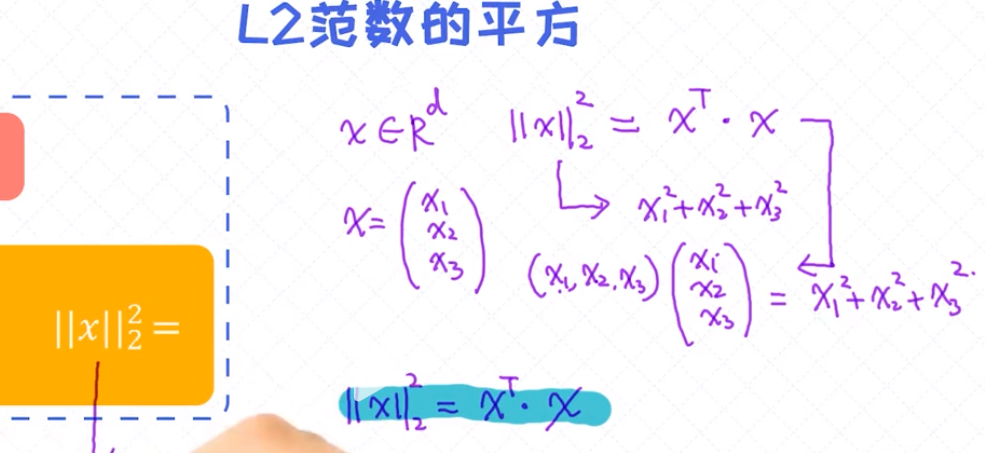 L2范数的平方
x∈R^d ||x||_2^2 = x^T · x
x_1^2+x_2^2+x_3^2
x= (x_1 x_2 x_3)
(x_1, x_2, x_3) (x_1 x_2 x_3) = x_1^2+x_2^2+x_3^2.
||x||_2^2 =
||x||_2^2 = x^T · x